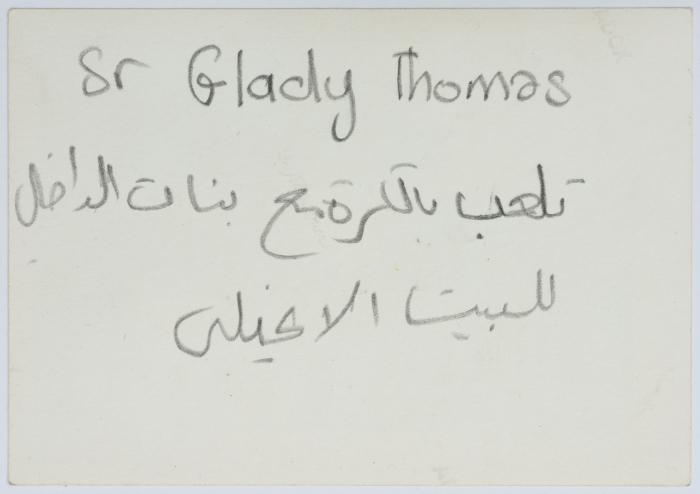 Sr Glady Thomas
تلعب بالكرة مع بنات الداخل
للبيت الانجيلى